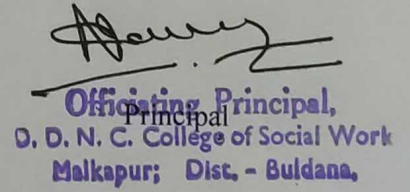 Officiating Principal,
Principal
D. D. N. C. College of Social Work
Malkapur; Dist. - Buldana,